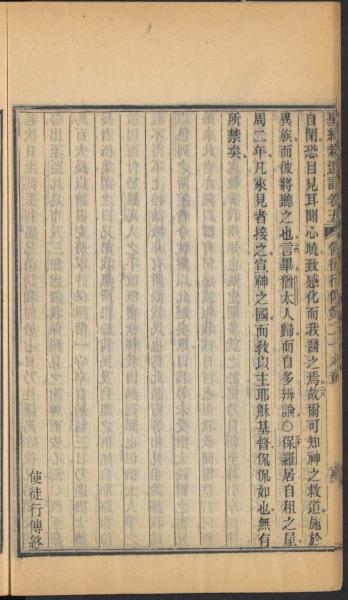 聖經新遺詔卷五 使徒行傳第二十八章
自閉恐目見耳聞心曉致感化而我醫之焉故爾可知神之救道施於
異族而彼將聽之也言畢猶太人歸而自多辨論○保羅居自租之屋
周二年凡來見者接之宣神之國而教以主耶穌基督侃侃如也無有
所禁矣
使徒行傳終